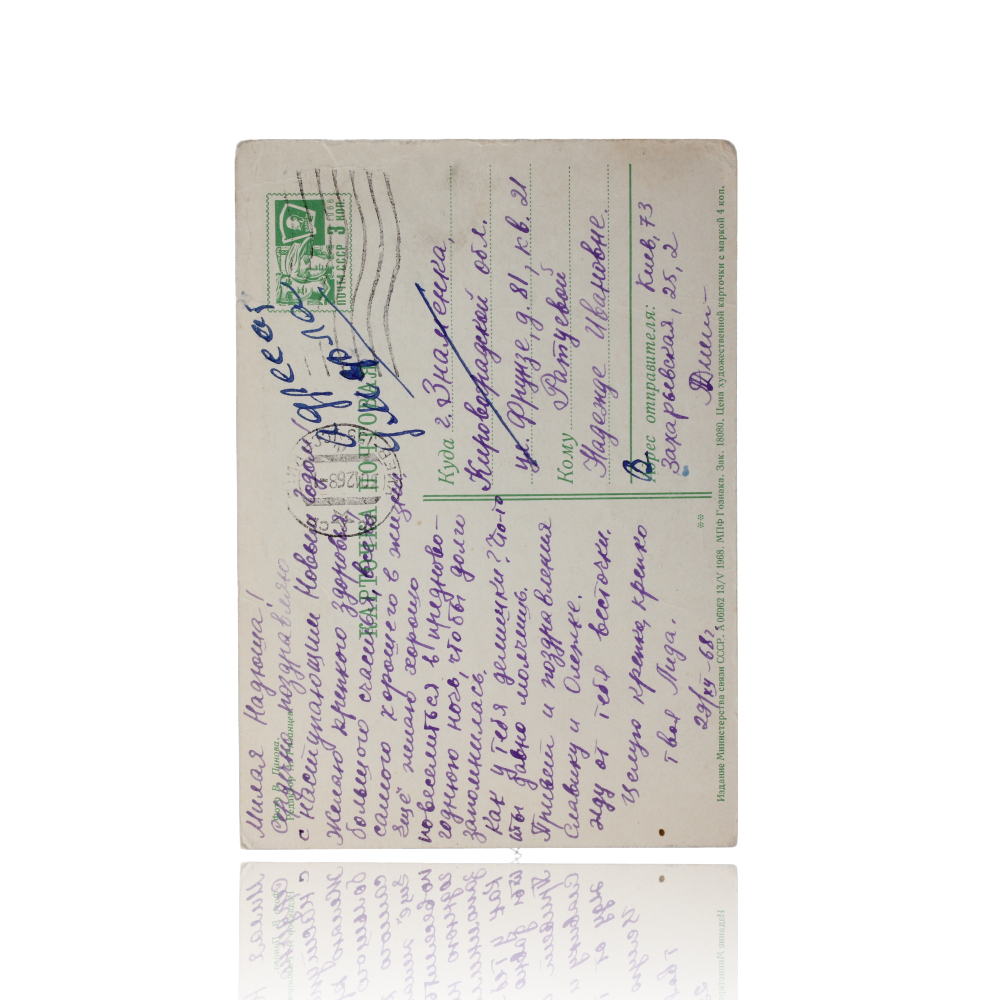 Милая Надюша!
Сердечно поздравляю
с наступающим Новым годом!
Желаю крепкого здоровья,
большого счастья, всего
самого хорошего в жизни.
Ещё желаю хорошо
повеселиться в предново-
годнюю ночь, чтобы долго
запомнилась.
Как у тебя делишки? Что-то
ты давно молчишь.
Привет и поздравления
Славику и Оленьке.
Жду от тебя весточки.
Целую крепко, крепко
твоя Лида.
29/XII-68г.
Фото В. Панова.
КАРТОЧКА ПОЧТОВАЯ
ПОЧТА СССР 3 КОП.
1966
адресат
Куда г. Знаменка,
Кировоградской обл.
ул. Фрунзе, д. 81, кв. 21
Кому Ратуевой
Надежде Ивановне.
Адрес отправителя: Киев, 73
Захарьевская, 25, 2
**
Издание Министерства связи СССР. А 06962 13/V 1968. МПФ Гознака. Зак. 18080. Цена художественной карточки с маркой 4 коп.